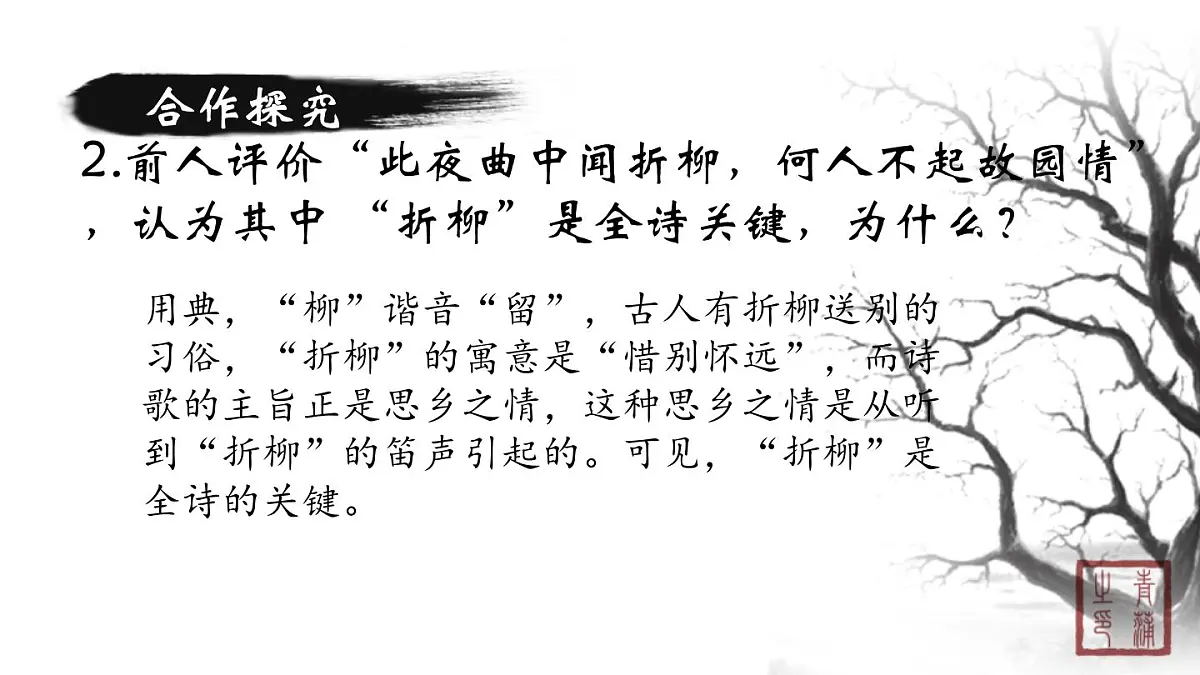 合作探究
2.前人评价“此夜曲中闻折柳，何人不起故园情”
，认为其中“折柳”是全诗关键，为什么？
用典，“柳”谐音“留”，古人有折柳送别的
习俗，“折柳”的寓意是“惜别怀远”，而诗
歌的主旨正是思乡之情，这种思乡之情是从听
到“折柳”的笛声引起的。可见，“折柳”是
全诗的关键。
青蒲
之印